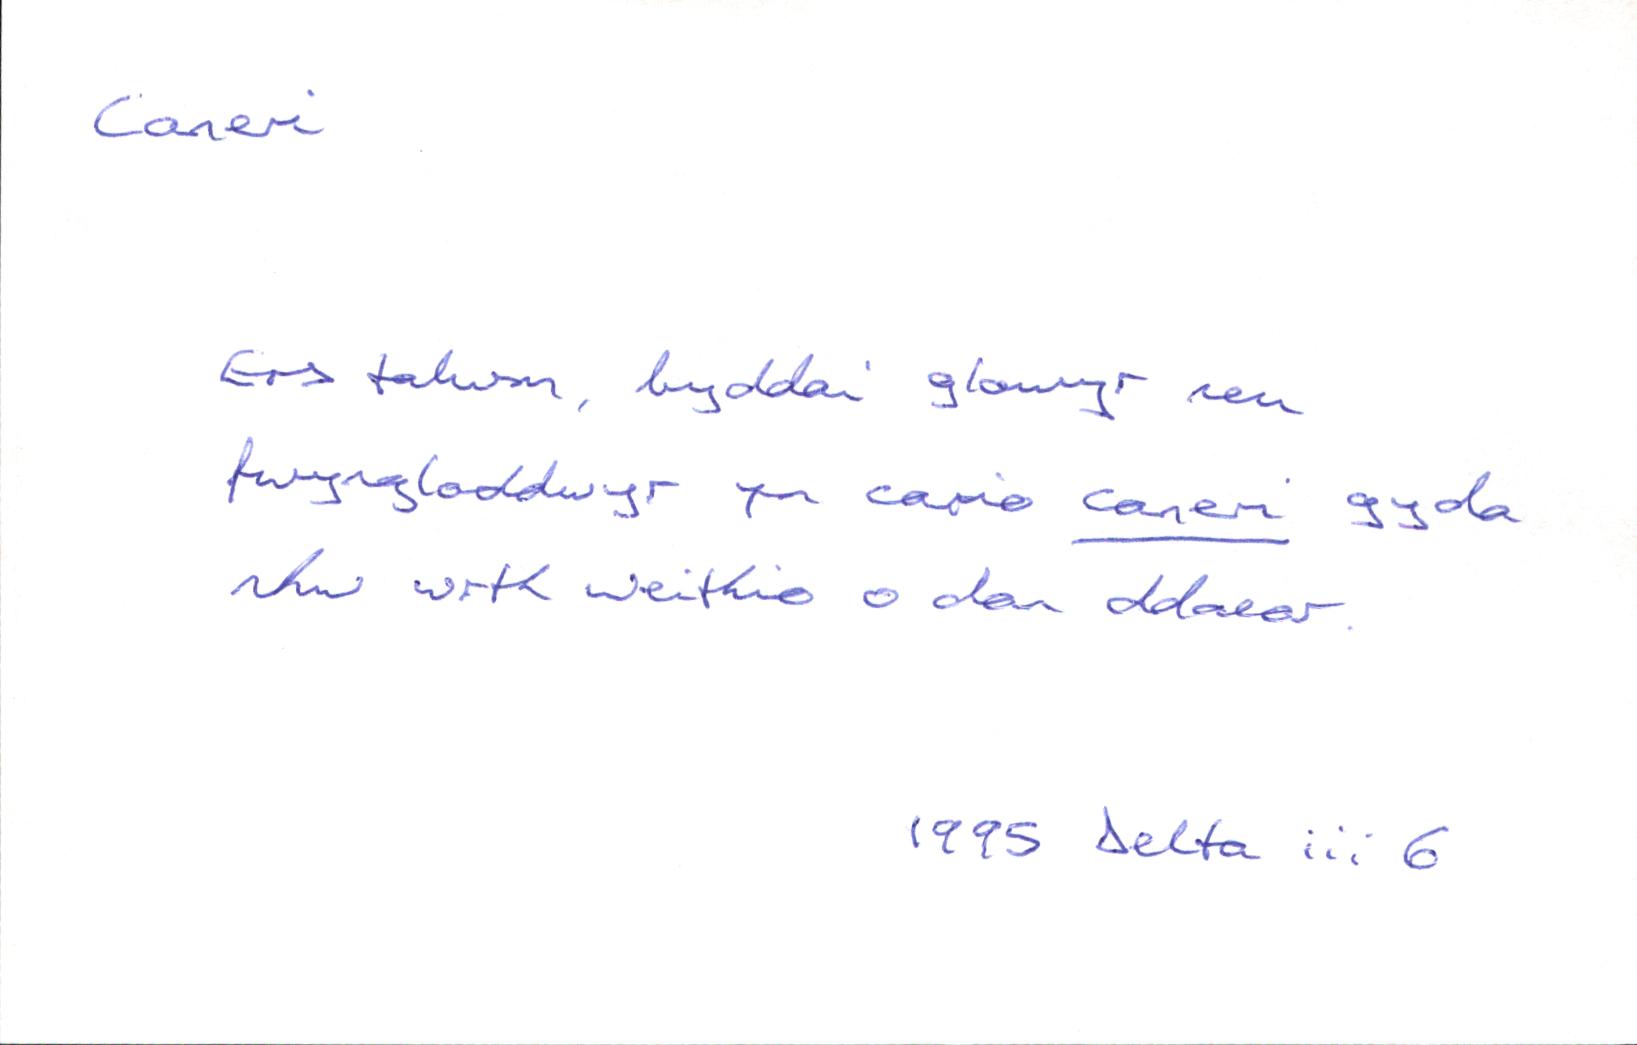 Caneri
Ers talwm, byddai glowyr neu
fwyngloddwyr yn cario caneri gyda
nhw wrth weithio o dan ddaear.
1995 Delta iii 6